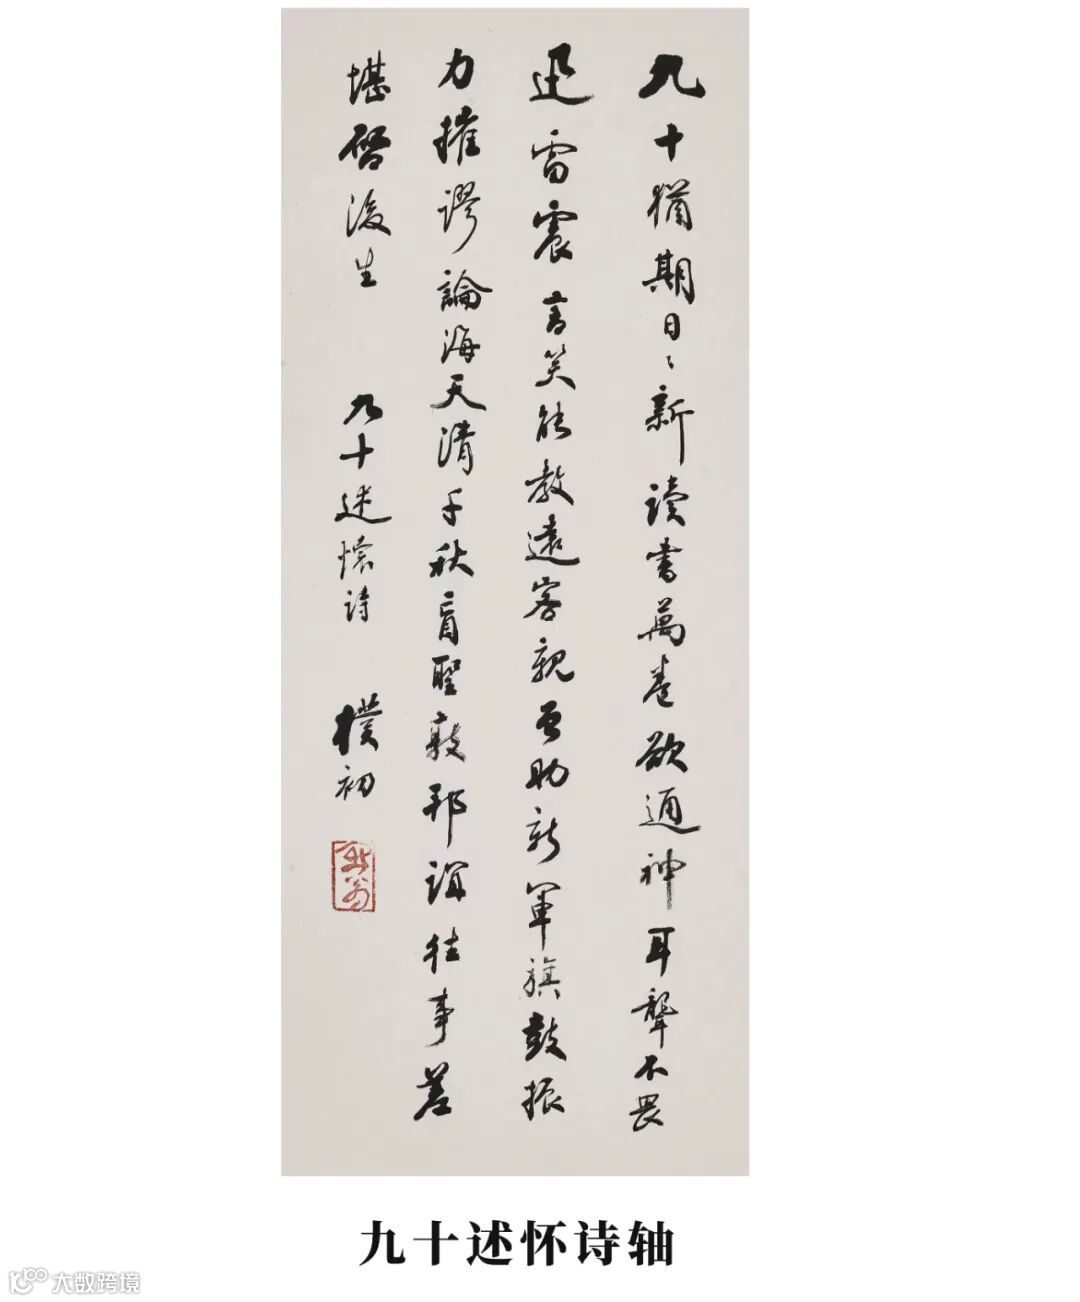 九十猶期日〻新读書萬卷欲通神耳聾不畏
迅雷震言笑能教遠客親曾助新軍旗鼓振
力摧謬論海天清千秋盲聖敦邦誼往事差
堪啓後生 九十述懷诗 樸初
九十述怀诗轴
大数跨境